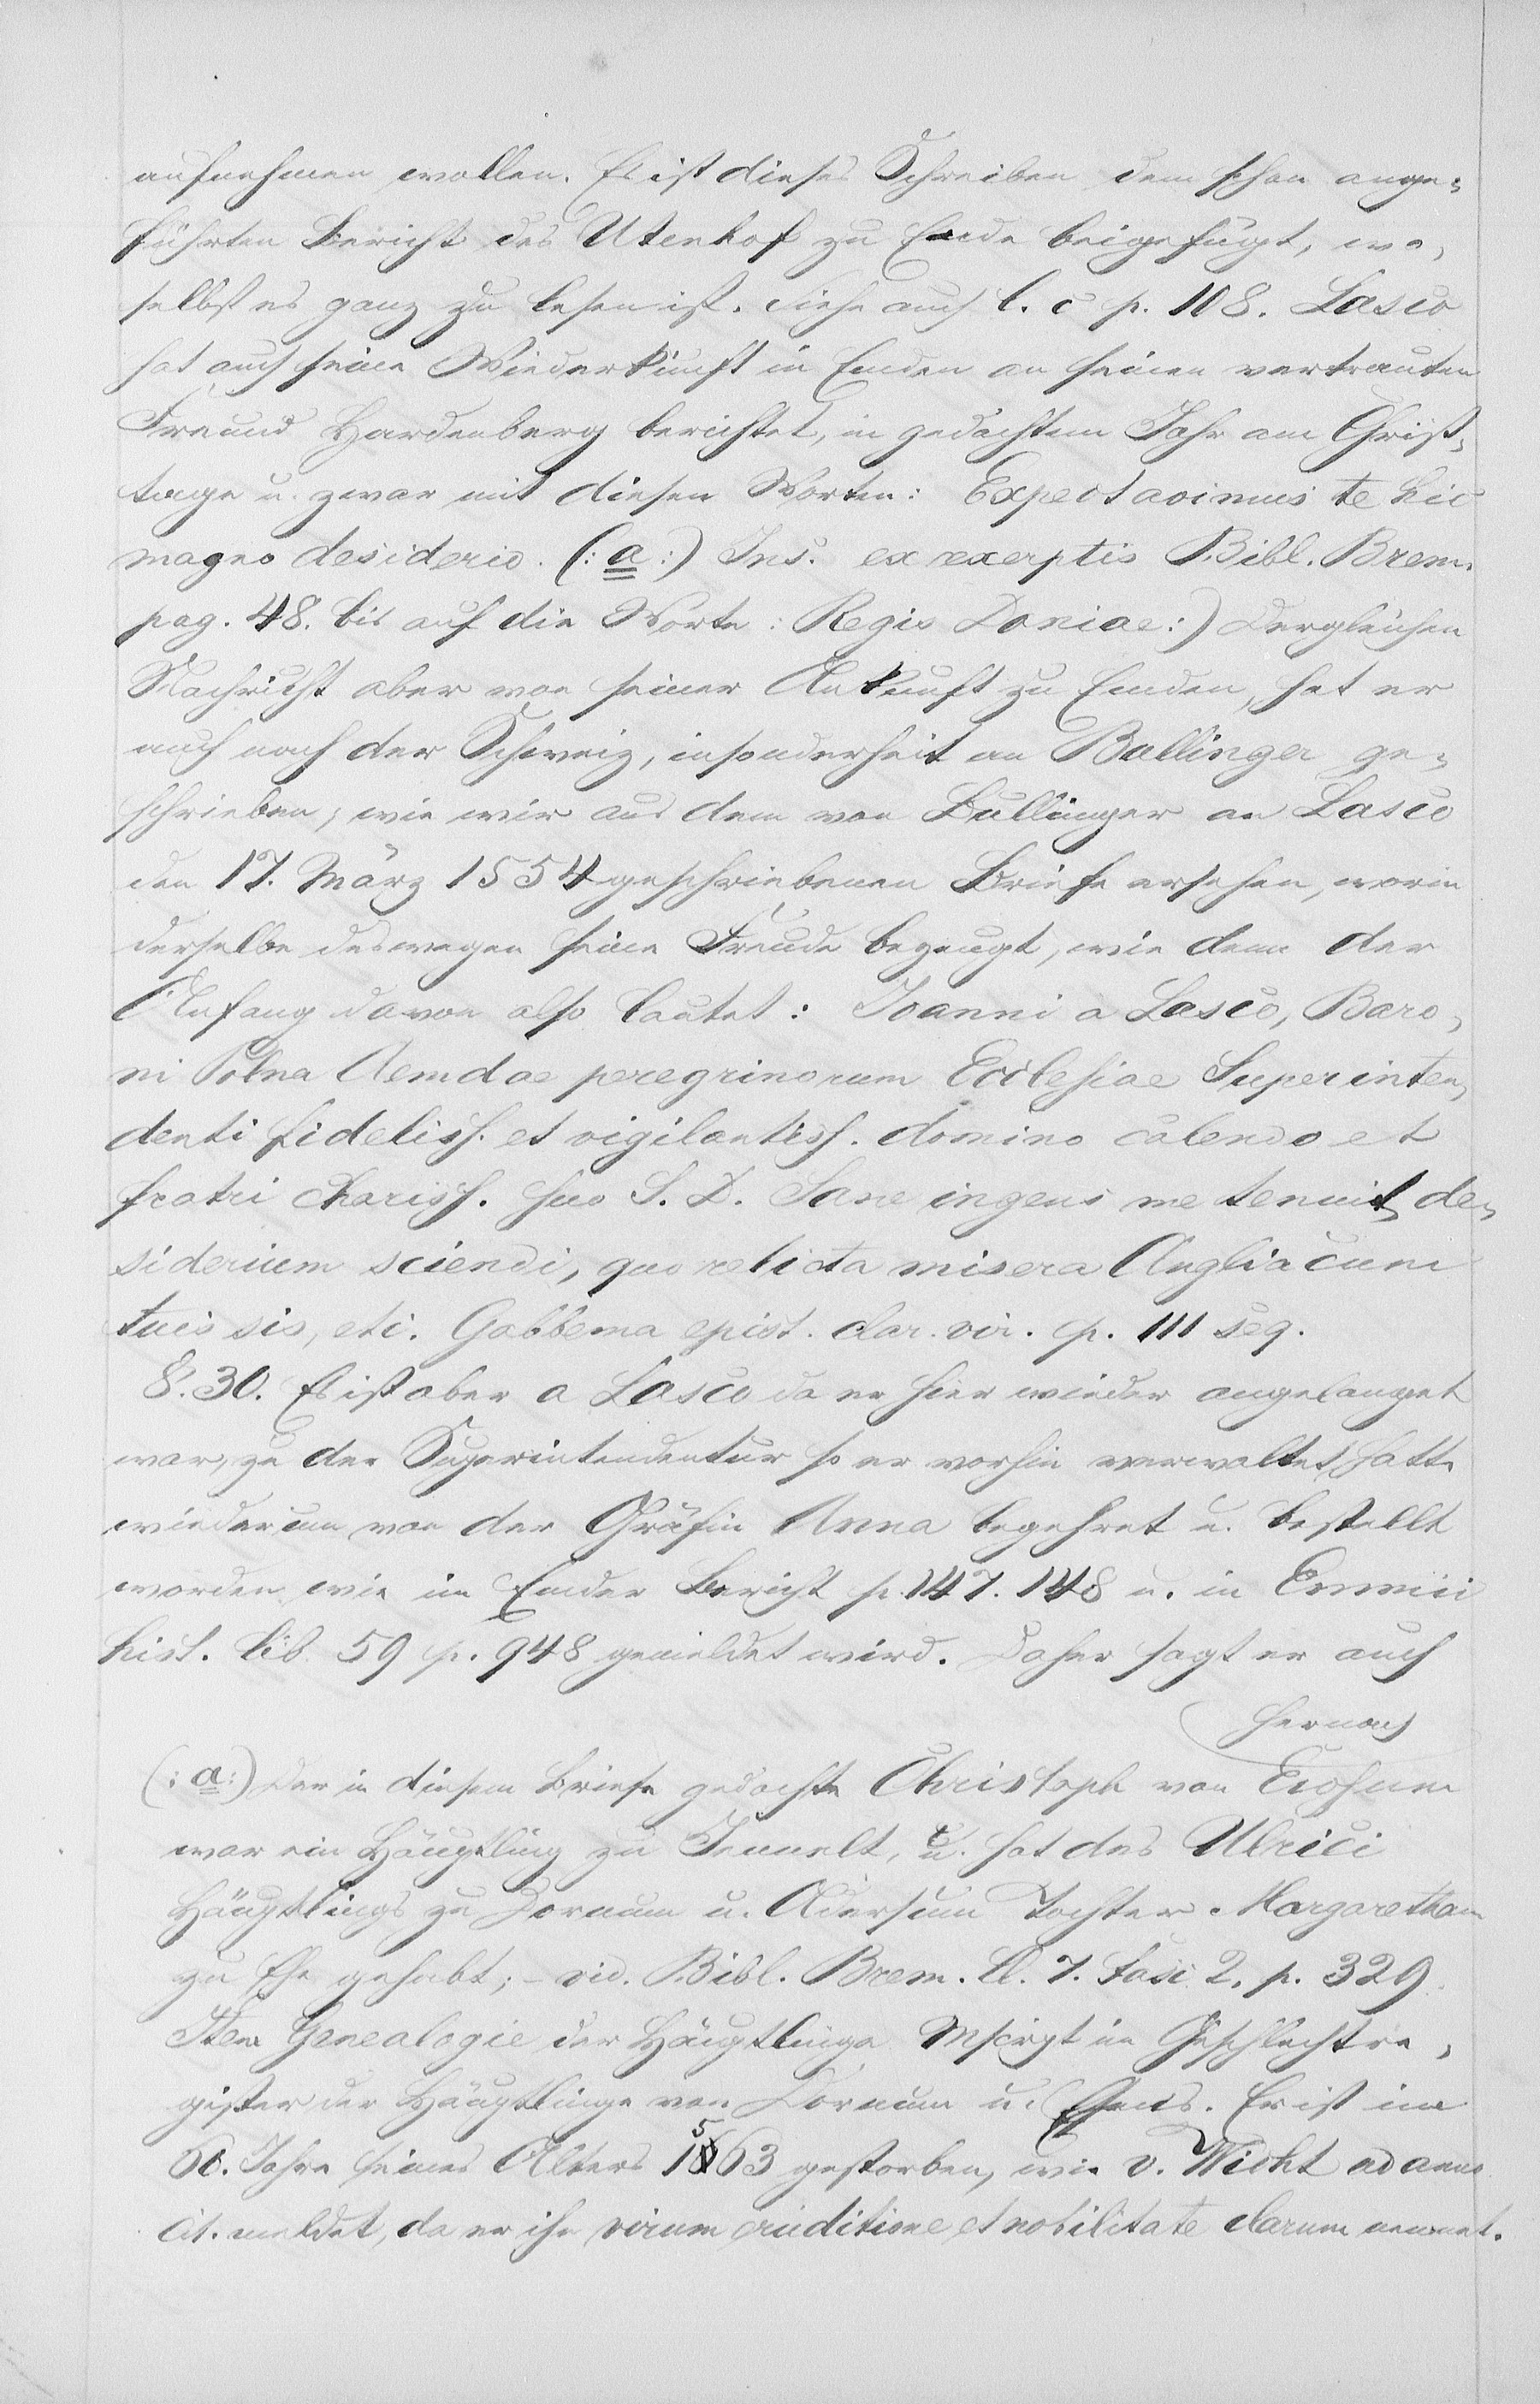 aufnehmen wollen. Es ist dieses Schreiben dem schon ange-
führten Bericht des Utenhof zu Ende beigefügt, wo-
selbst es ganz zu lesen ist. Siehe auch l. c p. 108. Lasco
hat auch seine Wiederkunft in Emden an seinen vertrauten
Freund Hardenberg berichtet, in gedachtem Jahr am Christ-
tage u. zwar mit diesen Worten: Expectavimus te hic
magno desiderio. (: a :) Ins. ex exerptis Bibl. Brem.
pag. 48. bis auf die Worte: Regis Daniae:) Dergleichen
Nachricht aber von seiner Ankunft zu Emden, hat er
auch nach der Schweiz, insonderheit an Bullinger ge-
schrieben, wie wir aus dem von Bullinger an Lasco
den 17. März 1554 geschriebenen Briefe ersehen, worin
derselbe deswegen seine Freude bezeugt, wie denn der
Anfang davon also lautet: Joanni a Lasco, Baro-
ni Polna Aemdae peregrinorum Ecclesiae Superinten-
denti fideliss. et vigilantiss. domino colendo et
fratri chariss. suo S. D. Sane ingens me tenuit de-
siderium sciendi, quo relicta misera Anglia cum
tuis sis, etc. Gabbema epist. clar. vir. p. 111 seq.
§. 30. Es ist aber a Lasco da er hier wieder angelanget
war, zu der Superintendentur so er vorhin verwaltet hatte
wiederum von der Gräfin Anna begehret u. bestellt
worden wie im Emder Bericht p. 147. 148 u. in Emmii
hist. lib. 59 p. 948 gemeldet wird. Daher sagt er auch
hernach
(: a :) Der in diesem Briefe gedachte Christoph von Ewsum
war ein Häuptling zu Jennelt, u. hat des Ulrici
Häuptlings zu Dornum u. Oldersum Tochter Margaretham
zu Ehe gehabt; - vid. Bibl. Brem. Cl. 7. Fasc. 2. p. 329.
Item Genealogie der Häuptlinge Mscrpt im Geschlechtre-
gister der Häuptlinge von Dornum u. Esens. Er ist im
60. Jahre seines Alters 1563 gestorben, wie v. Wicht ad ann.
cit. meldet, da er ihn virum eruditione et nobilitate clarum nennet.